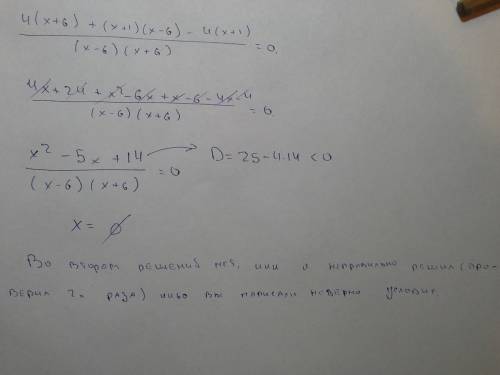 4(x+6) + (x+1)(x-6) - 4(x+1)
(x-6)(x+6) = 0.
4x + 24 + x² - 6x + x - 6 - 4x - 4
(x-6)(x+6) = 0.
x² - 5x + 14 → D = 25 - 4·14 < 0
(x-6)(x+6) = 0
x = ∅
Во втором решений нет, или я неправильно решил (про-
верил 2 раза) либо вы написали неверно условие.